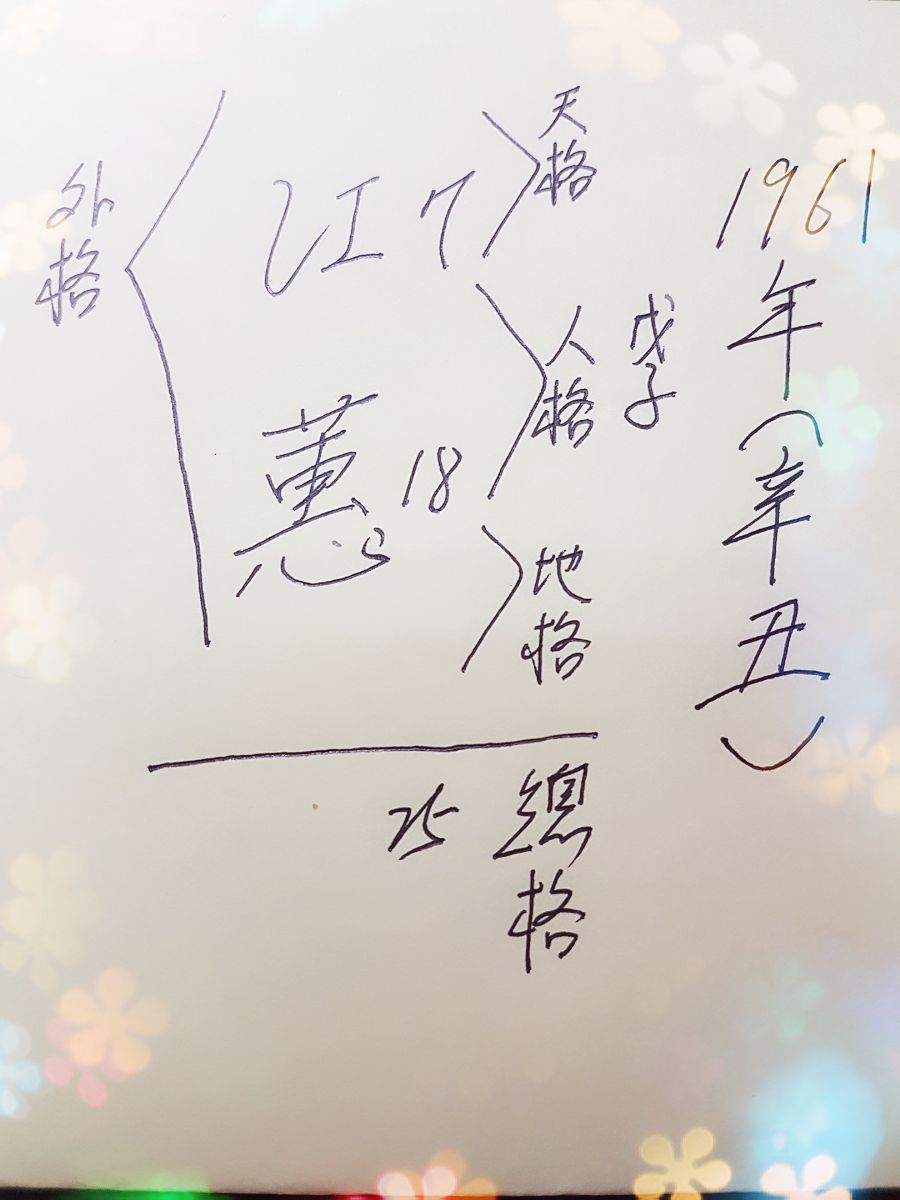 1961年(辛丑)
江 7
蕙 18
天格
人格
戊子
地格
外格
總格
25